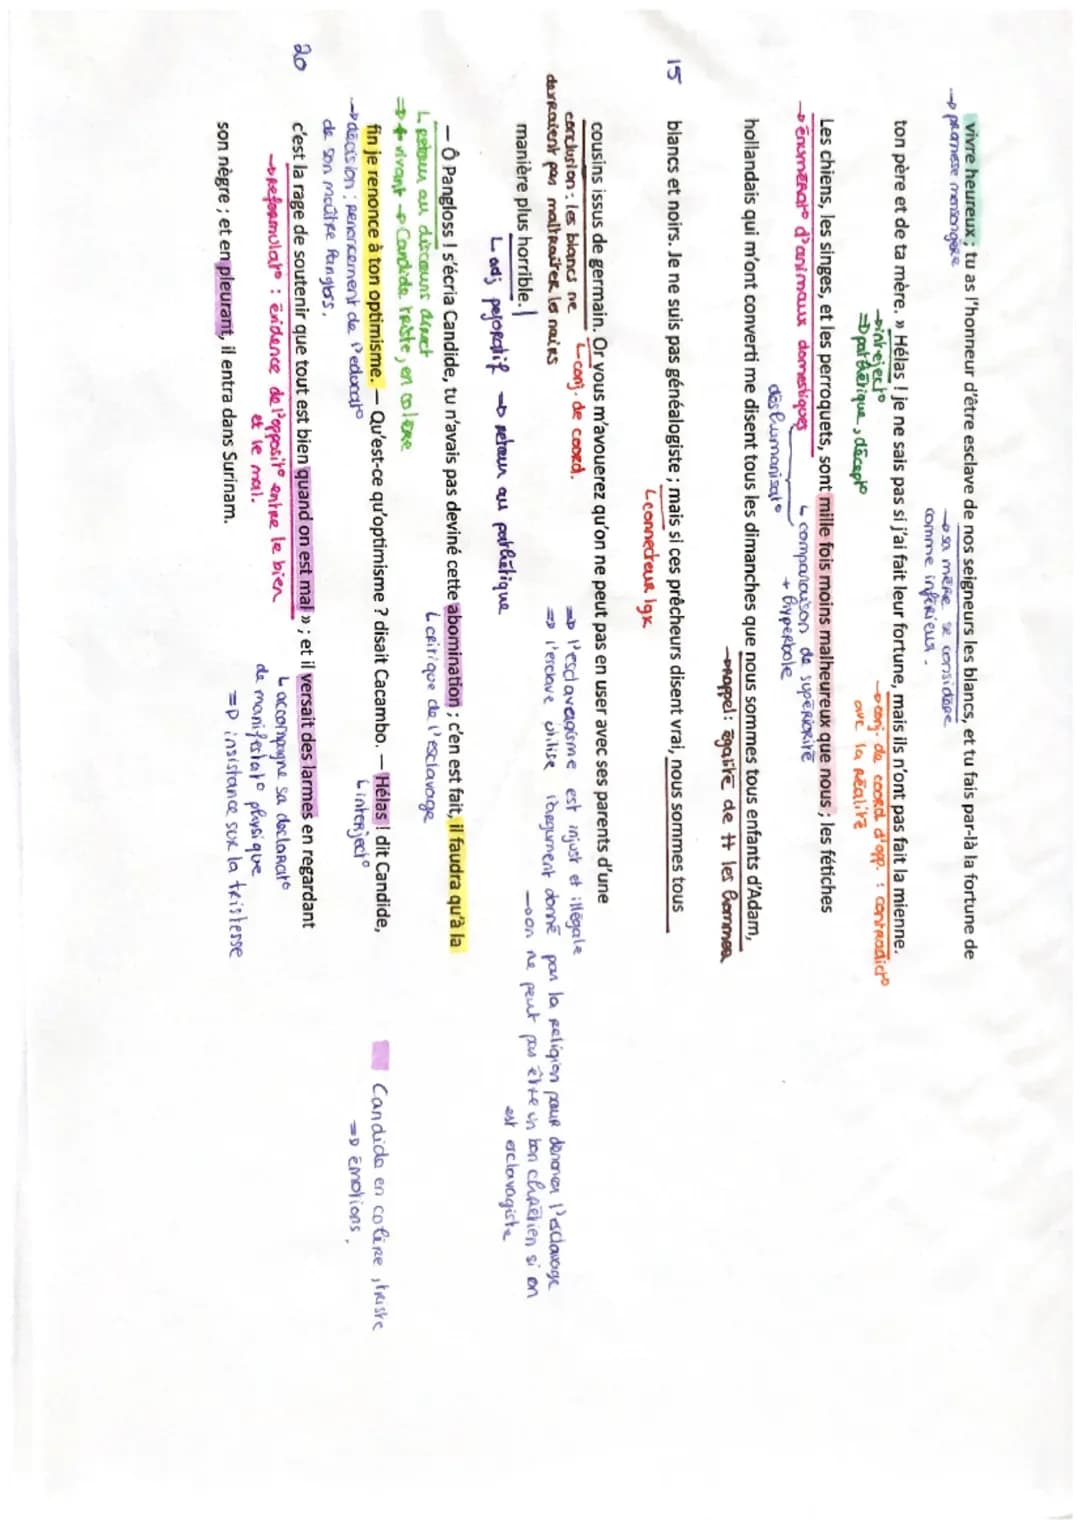 vivre heureux ; tu as l'honneur d'être esclave de nos seigneurs les blancs, et tu fais par-là la fortune de
→ promesse mensongère
→ sa mère se considère
comme inférieur.
ton père et de ta mère. » Hélas ! je ne sais pas si j'ai fait leur fortune, mais ils n'ont pas fait la mienne.
→ interject°
⇒ pathétique, décept°
→ conj. de coord d'opp. : contradict°
avc la réalité
Les chiens, les singes, et les perroquets, sont mille fois moins malheureux que nous ; les fétiches
→ énumérat° d'animaux domestiques
↳ comparaison de supériorité
+ hyperbole
déshumanisat°
hollandais qui m'ont converti me disent tous les dimanches que nous sommes tous enfants d'Adam,
→ rappel : égalité de tt les hommes
15 blancs et noirs. Je ne suis pas généalogiste ; mais si ces prêcheurs disent vrai, nous sommes tous
↳ connecteur lgk
cousins issus de germain. Or vous m'avouerez qu'on ne peut pas en user avec ses parents d'une
conclusion : les blancs ne
devraient pas maltraiter les noirs
↳ conj. de coord.
⇒ l'esclavagisme est injust et illégale
⇒ l'esclave utilise l'argument donné par la religion pour dénoncer l'esclavage
→ on ne peut pas être un bon chrétien si on
est esclavagiste
manière plus horrible. |
↳ adj péjoratif → retour au pathétique
– Ô Pangloss ! s'écria Candide, tu n'avais pas deviné cette abomination ; c'en est fait, il faudra qu'à la
↳ retour au discours direct
⇒ + vivant → Candide triste, en colère
↳ critique de l'esclavage
fin je renonce à ton optimisme. – Qu'est-ce qu'optimisme ? disait Cacambo. – Hélas ! dit Candide,
→ décision : renoncement de l'éducat°
de son maître Pangloss.
↳ interject°
Candide en colère, triste
⇒ émotions.
20 c'est la rage de soutenir que tout est bien quand on est mal » ; et il versait des larmes en regardant
→ reformulat° : évidence de l'opposit° entre le bien
et le mal.
↳ accompagne sa déclarat°
de manifestat° physique
⇒ insistance sur la tristesse
son nègre ; et en pleurant, il entra dans Surinam.